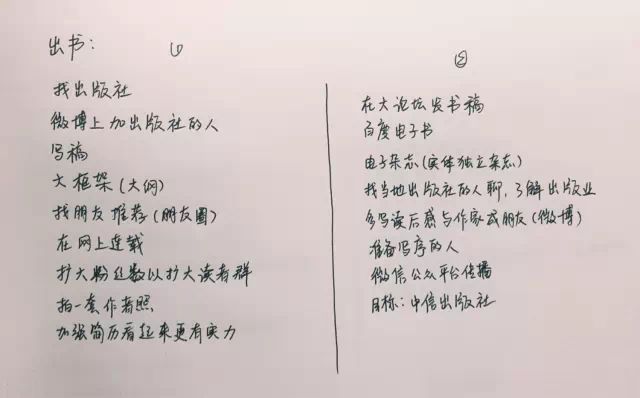 出书：
①
找出版社
微博上加出版社的人
写稿
大框架（大纲）
找朋友推荐（朋友圈）
在网上连载
扩大粉丝数以扩大读者群
拍一套作者照
加强简历看起来更有实力
②
在大论坛发书稿
百度电子书
电子杂志（实体独立杂志）
找当地出版社的人聊，了解出版业
多写读后感与作家成朋友（微博）
准备写序的人
微信公众平台传播
目标：中信出版社